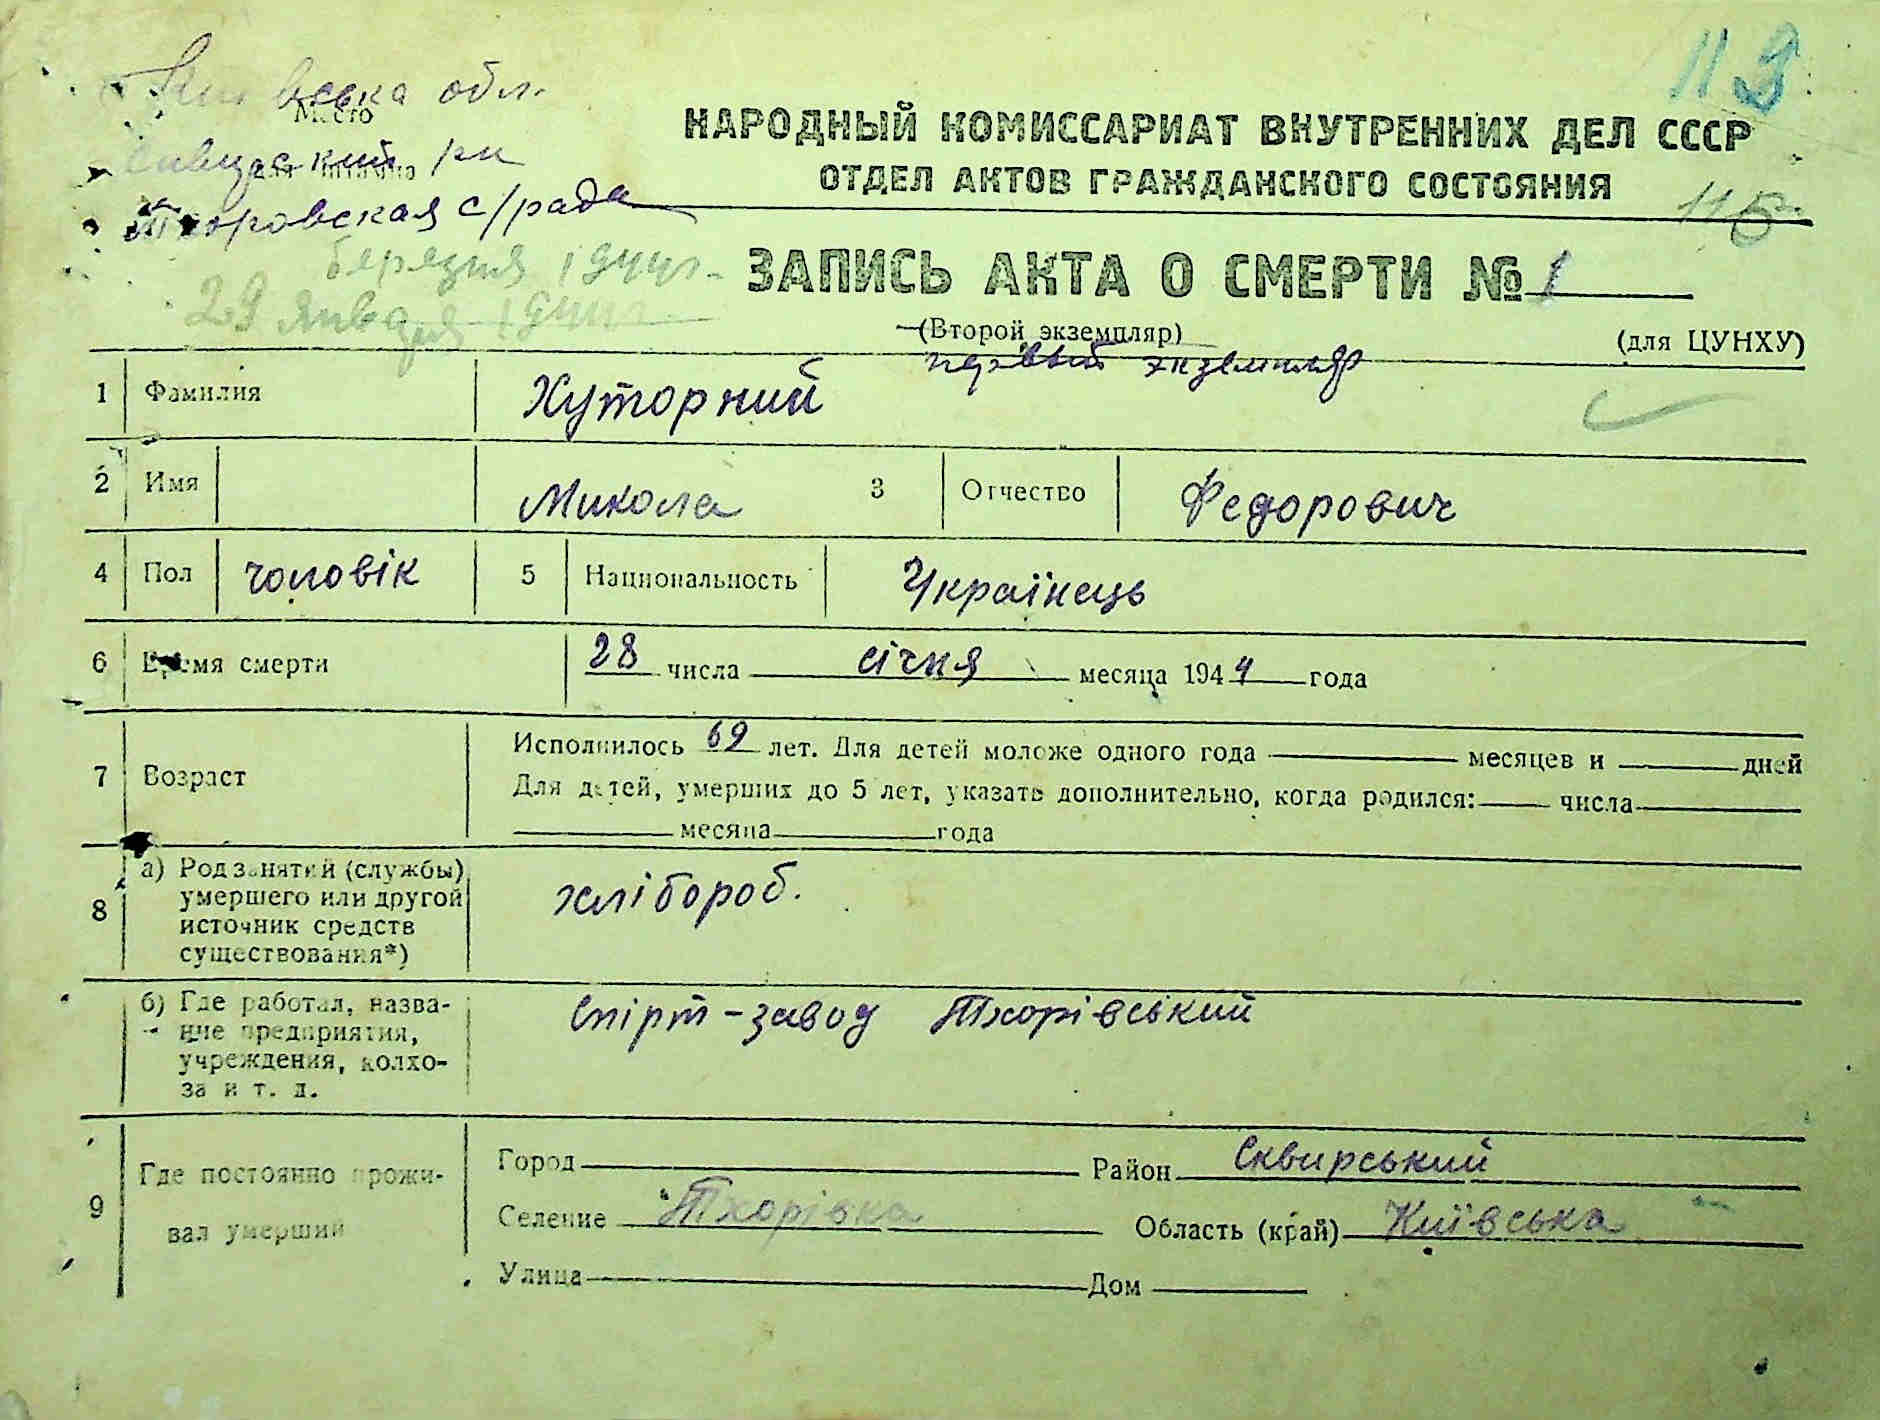 113
вська обл.
Место
рн
НАРОДНЫЙ КОМИССАРИАТ ВНУТРЕННИХ ДЕЛ СССР
ОТДЕЛ АКТОВ ГРАЖДАНСКОГО СОСТОЯНИЯ
Тхоровская с/рада
115
березня 1944 г.
29 января 1944 г.
ЗАПИСЬ АКТА О СМЕРТИ № 1
(Второй экземпляр)
первый экземпляр
(для ЦУНХУ)
1 Фамилия Хуторний
2 Имя Микола 3 Отчество Федорович
4 Пол чоловік 5 Национальность Українець
6 Время смерти 28 числа січня месяца 1944 года
7 Возраст Исполнилось 69 лет. Для детей моложе одного года месяцев и дней
Для детей, умерших до 5 лет, указать дополнительно, когда родился: числа
месяца года
8 а) Род занятий (службы) умершего или другой источник средств существования*) хлібороб.
б) Где работал, назва-
ние предприятия,
учреждения, колхо-
за и т. д.
Спірт-завод Тхорівський
9 Где постоянно прожи-
вал умерший
Город Район Сквирський
Селение Тхорівка Область (край) Київська
Улица Дом